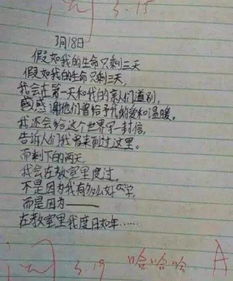 3.15
3月18日
假如我的生命只剩三天
假如我的生命只剩三天,
我会在第一天和我的亲人们道别,
感谢他们曾给予我的爱和温暖。
我还会给这个世界写一封信,
告诉人们我曾来到过这里。
而剩下的两天,
我会在教室里度过。
不是因为我有多么好学,
而是因为——
在教室里我度日如年……
3.19 哈哈哈 A